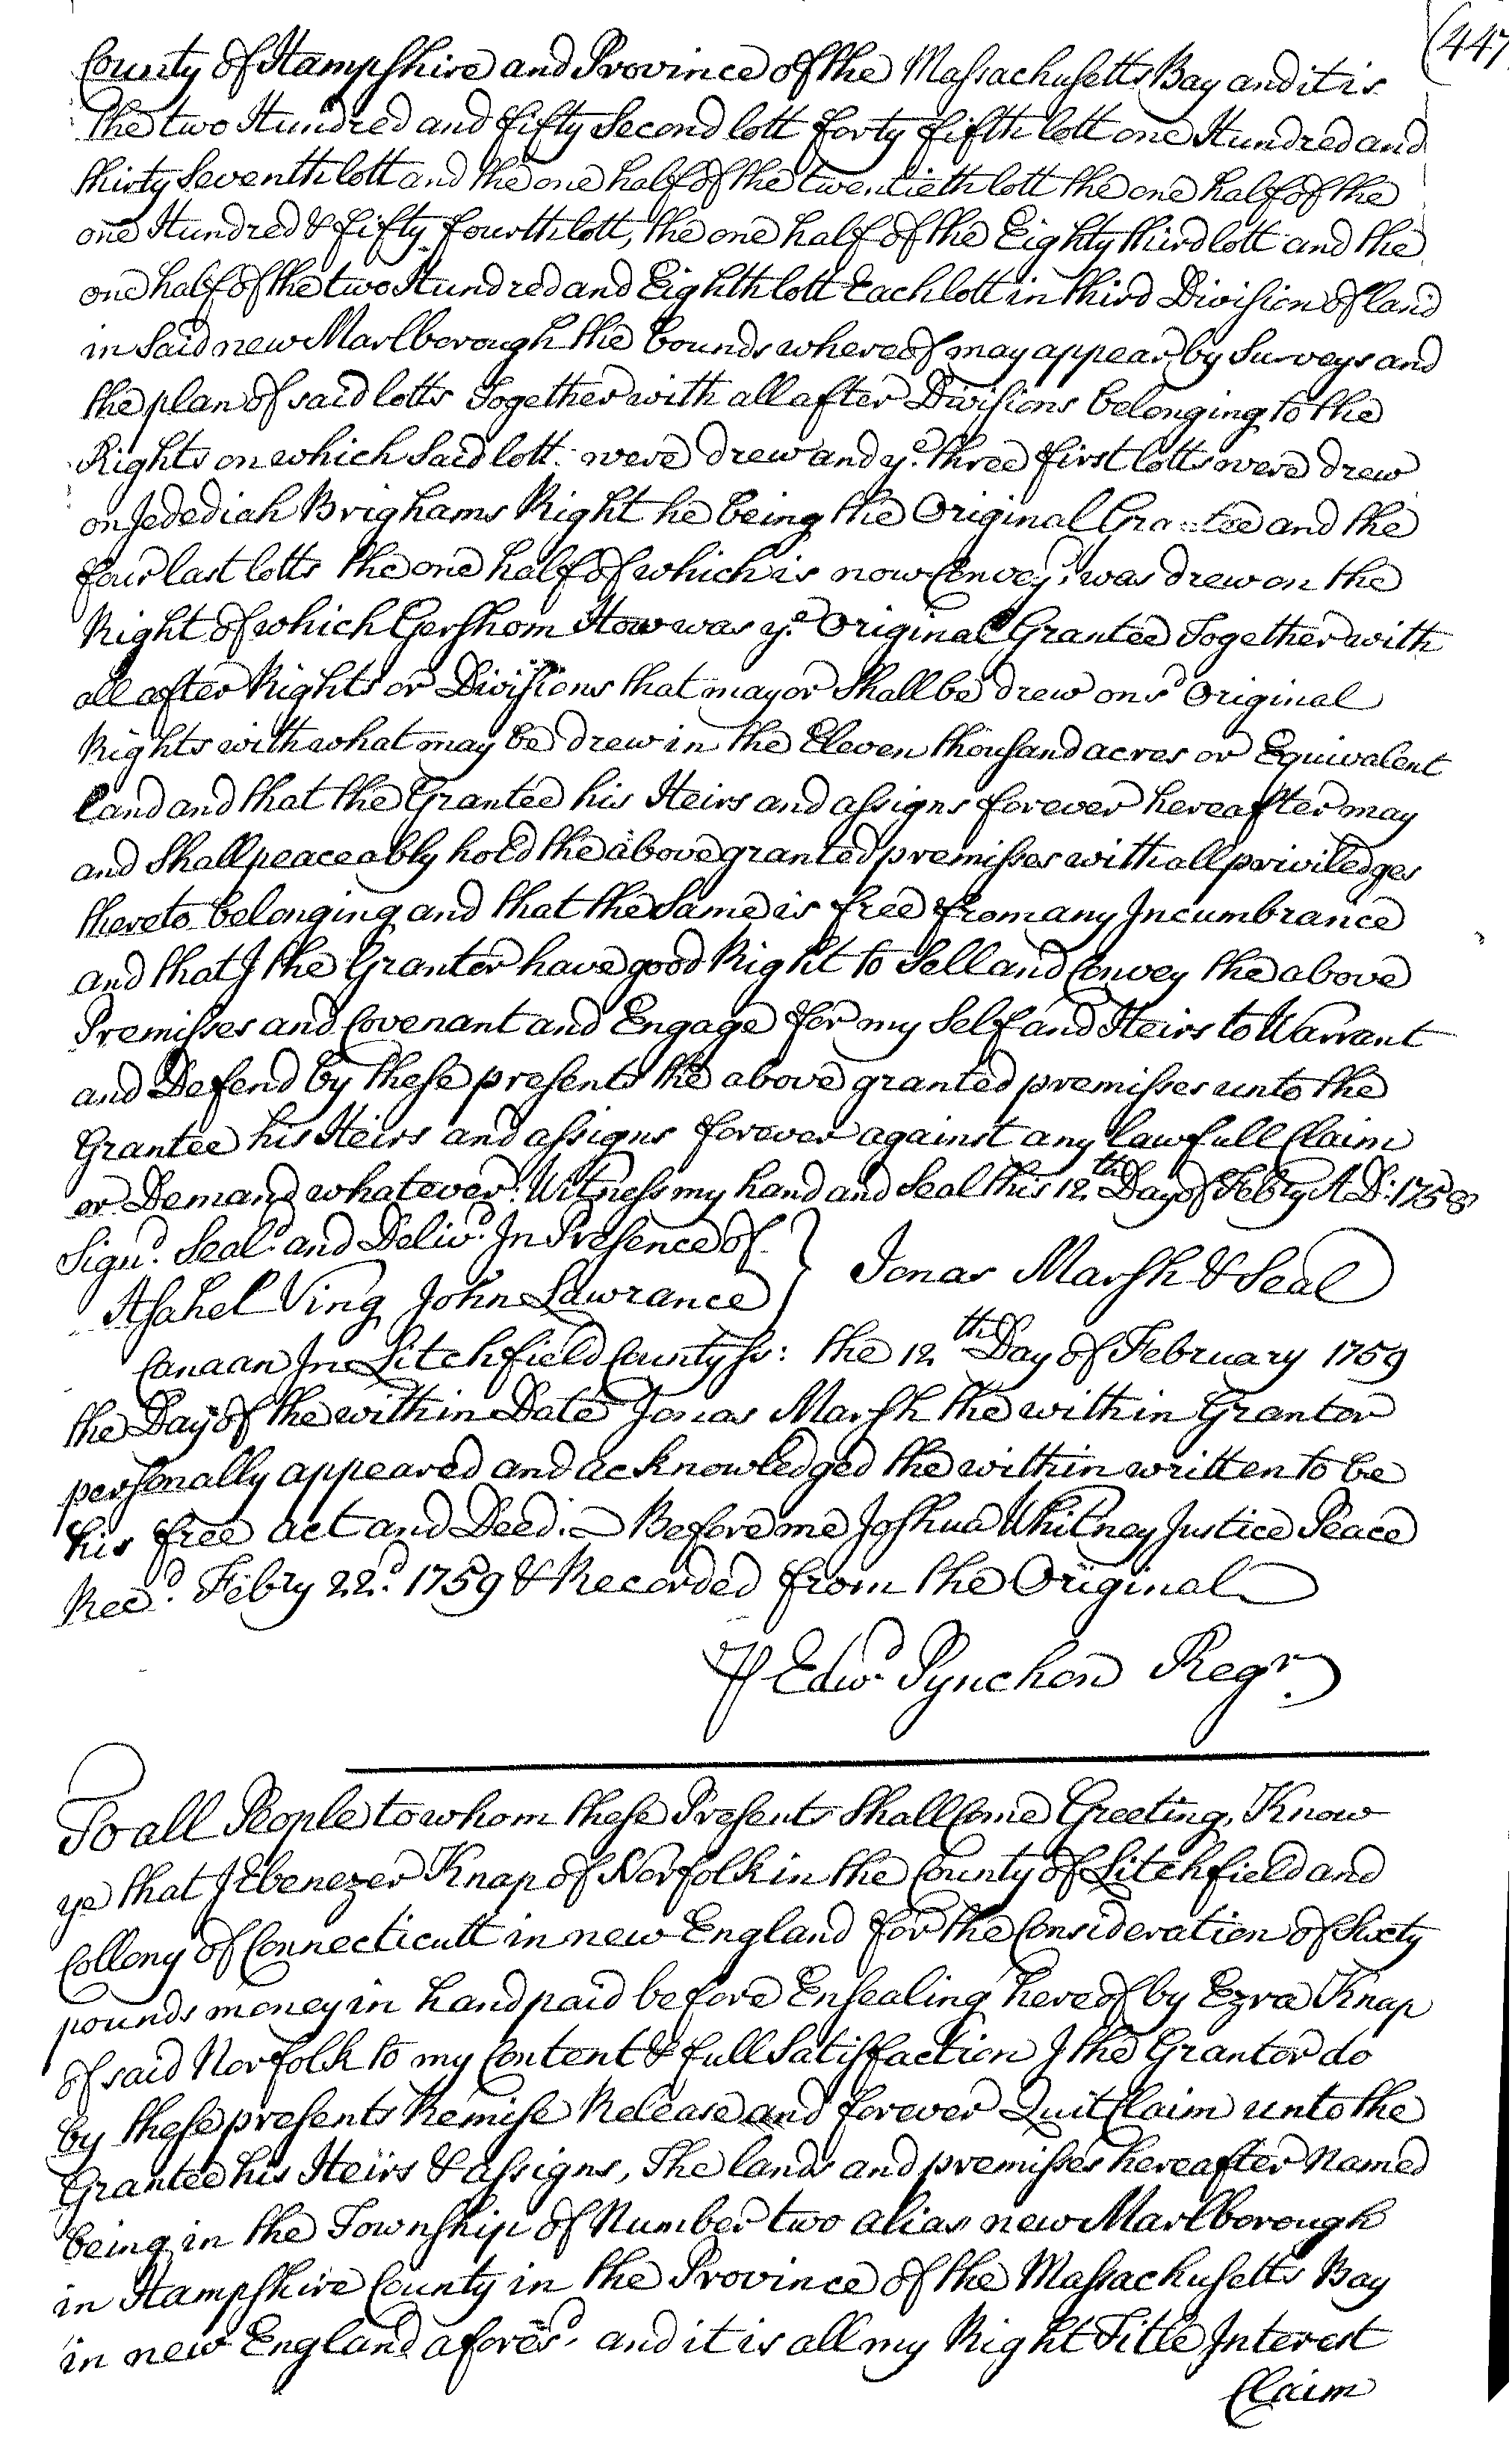 (447
County of Hampshire and Province of the Massachusetts Bay and it is
the two Hundred and fifty Second lott forty fifth lott one Hundred and
thirty Seventh lott and the one half of the twentieth lott the one half of the
one Hundred & fifty fourth lott, the one half of the Eighty third lott and the
one half of the two Hundred and Eighth lott Each lott in third Division of land
in Said new Marlborough the bounds whereof may appear by Surveys and
the plan of said lotts Together with all after Divisions belonging to the
Rights on which Said lott: were drew and ye. three first lotts were drew
on Jedediah Brighams Right he being the Original Grantee and the
four last lotts the one half of which is now Convey'd was drew on the
Right of which Gershom How was ye. Original Grantee Together with
all after Rights or Divisions that may or Shall be drew on sd Original
Rights with what may be drew in the Eleven thousand acres or Equivalent
land and that the Grantee his Heirs and assigns forever hereafter may
and Shall peaceably hold the above granted premisses with all priviledges
thereto belonging and that the Same is free from any Incumbrance
and that I the Grantor have good Right to Sell and Convey the above
Premisses and Covenant and Engage for my Self and Heirs to Warrant
and Defend by these presents the above granted premisses unto the
Grantee his Heirs and assigns forever against any lawfull Claim
or Demand whatever. Witness my hand and Seal this 12th Day of Febry A.D: 1758
Signd. Seald. and Delivd. In Presence of }
Asahel Ving John Lawrance } Jonas Marsh & Seal
Canaan In Litchfield County ss: the 12th Day of February 1759
the Day of the within Date Jonas Marsh the within Grantor
personally appeared and acknowledged the within written to be
his free act and Deed. Before me Joshua Whitney Justice Peace
Recd. Febry 22d. 1759 & Recorded from the Original
Edwd Pynchon Regr.
To all People to whom these Presents Shall Come Greeting, Know
ye that I Ebenezer Knap of Norfolk in the County of Litchfield and
Collony of Connecticutt in new England for the Consideration of Sixty
pounds money in hand paid before Ensealing hereof by Ezra Knap
of said Norfolk to my Content & full Satisfaction I the Grantor do
by these presents Remise Release and forever Quit Claim unto the
Grantee his Heirs & assigns, The lands and premisses hereafter Named
being in the Township of Number two alias new Marlborough
in Hampshire County in the Province of the Massachusetts Bay
in new England aforesd. and it is all my Right Title Interest
Claim